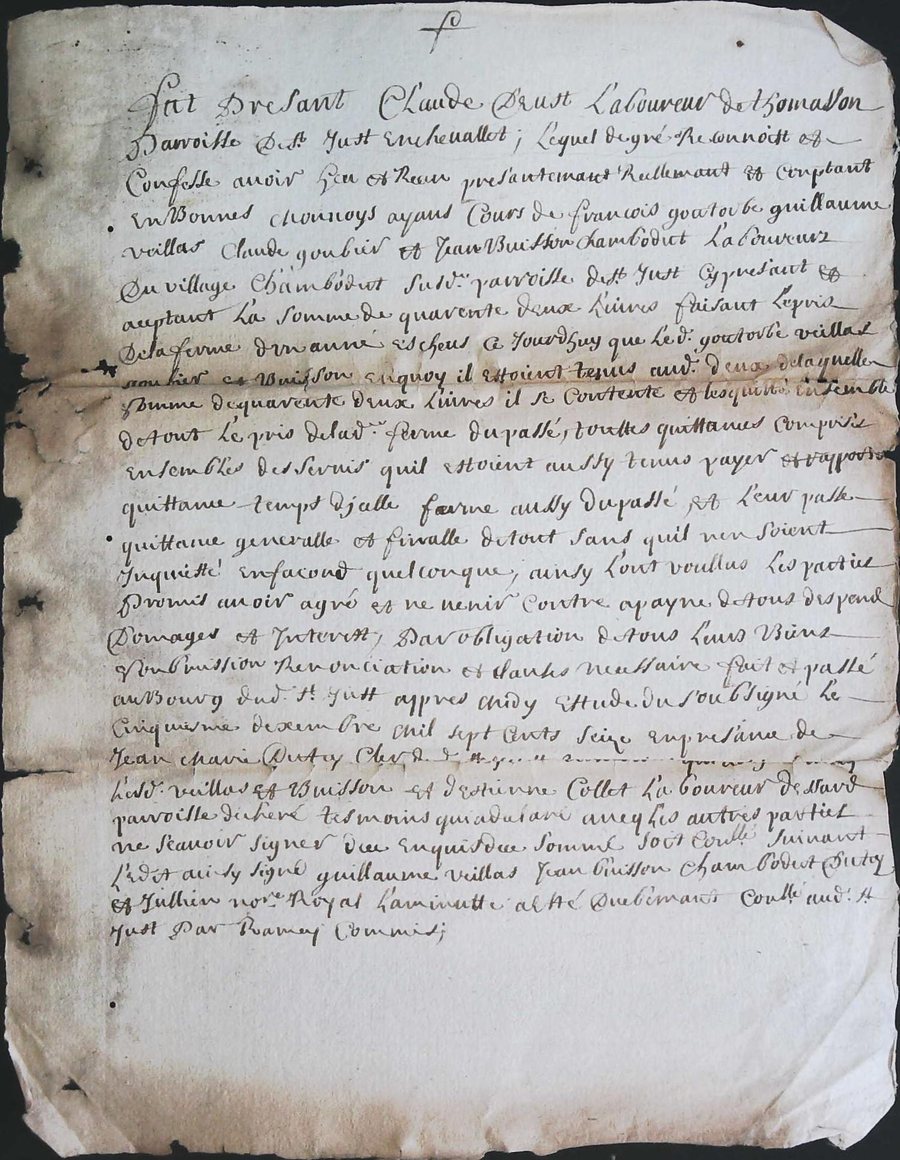 fut Présant Claude Deust Laboureur de thomasson
Parroisse De st Just Enchevallet, Lequel de gré Reconnoist et
Confesse avoir heu et Reçu présantemant Reellemant et Comptant
En Bonnes monnoys ayans Cours de françois goutorbe guillaume
veillas Claude goubier et Jean Buisson Chambodut Laboureurs
Du village Chambodut susd. parroisse de st Just Cy présant et
aceptant La somme de quarente deux Livres faisant Le pris
De la ferme d'un anné Escheus Ce Jourdhuy que Led. goutorbe veillas
goubier et Buisson Enquoy il Estoient tenus aud. Deux de laquelle
somme de quarente deux Livres il se Contente et les quitte Ensemble
de tout Le pris de lad. ferme du passé, touttes quittances Comprises
Ensembles des servis quil Estoient aussy tenus payer
quittance temps Djcelle ferme aussy du passé, et Leur passe
quittance generalle et finalle de tout sans quil n'en soient
Inquietté En facond quelconque, ainsy Lont voullus Les parties
Promis avoir agré et ne venir Contre a payne de tous despend
Domages et Interest, Par obligation de tous Leurs Biens
soubmission Renonciation et clauses necessaire fait et passé
au Bourg dud. st Just appres midy Estude du soubsigné Le
Cinquiesme dexembre mil sept Cents seize En présance de
Jean Duticy Clerd
Lesd. veillas et Buisson et d'Estienne Collet Laboureur
parroisse de tesmoins qui a declaré avecq Les autres parties
ne scavoir signer de ce Enquis de ce sommé soit Conllé suivant
L'edit aicsy signé guillaume veillas Jean buisson Chambodut Duticy
et Jullien nore Royal La minutte a esté Duebemant Conllé aud. st
Just Par Ramey Commis,